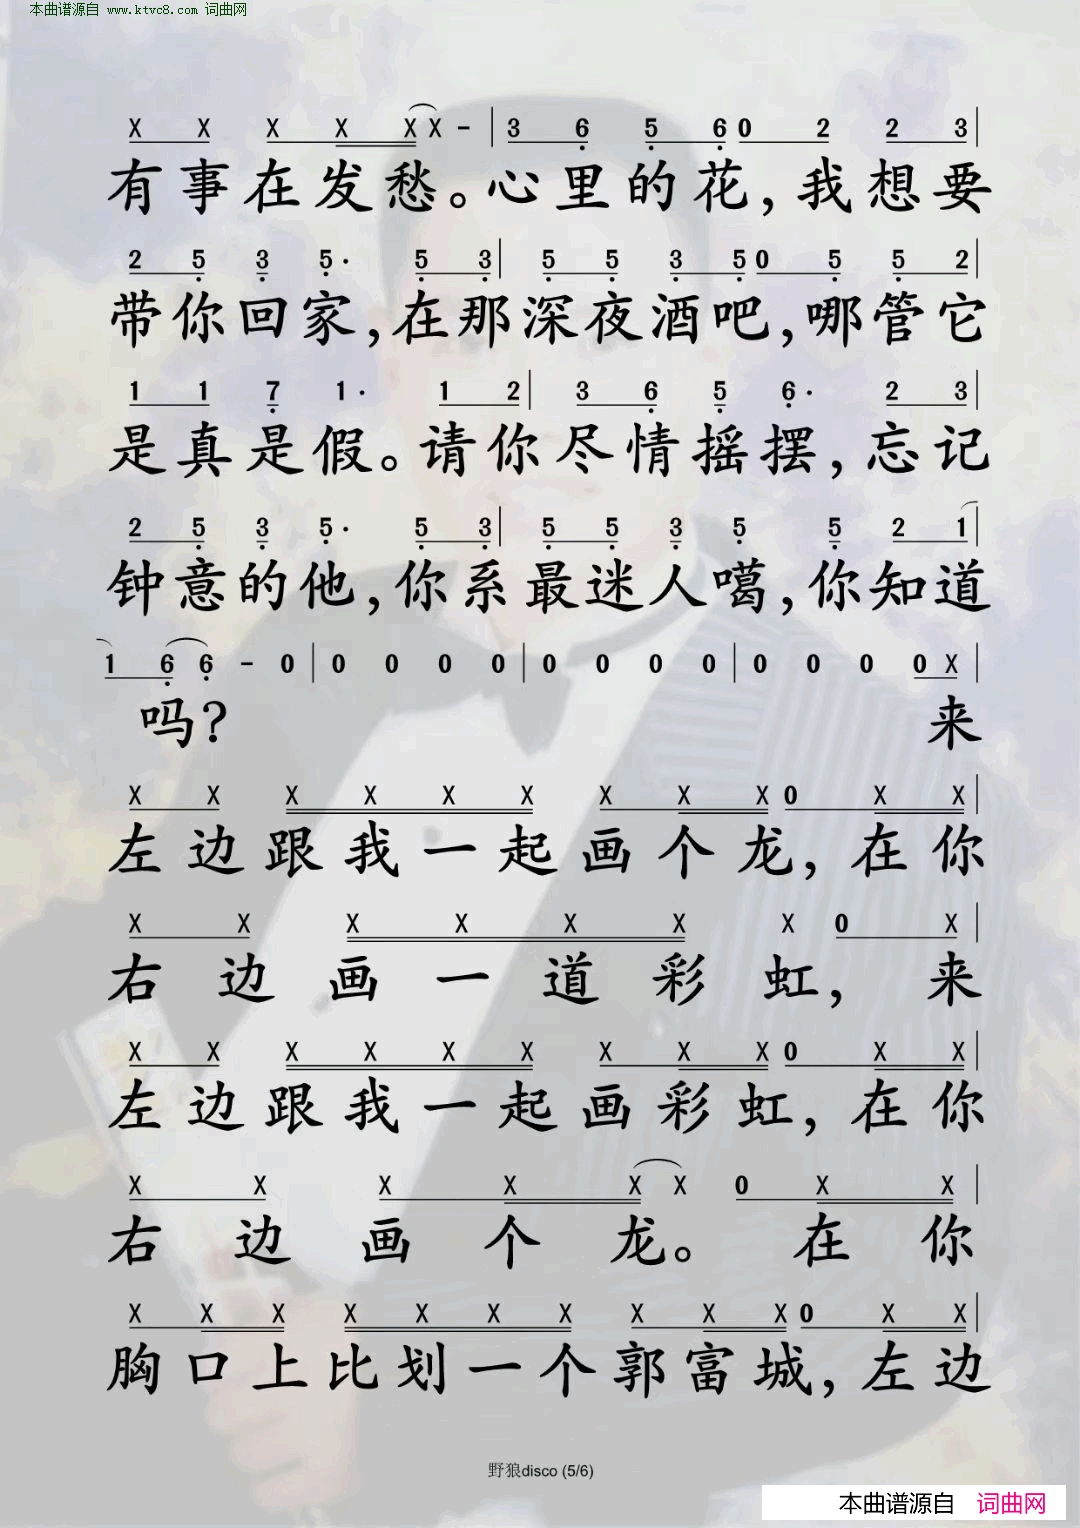 本曲谱源自 www.ktvc8.com 词曲网
X X X X X X - | 3 6 5 6 0 2 2 3 |
有事在发愁。心里的花，我想要
2 5 3 5 · 5 3 | 5 5 3 5 0 5 5 2 |
带你回家，在那深夜酒吧，哪管它
1 1 7 1 · 1 2 | 3 6 5 6 · 2 3 |
是真是假。请你尽情摇摆，忘记
2 5 3 5 · 5 3 | 5 5 3 5 5 2 1 |
钟意的他，你系最迷人噶，你知道
1 6 6 - 0 | 0 0 0 0 | 0 0 0 0 | 0 0 0 0 X |
吗？ 来
X X X X X X X X X 0 X X |
左边跟我一起画个龙，在你
X X X X X X X 0 X |
右边画一道彩虹，来
X X X X X X X X X 0 X X |
左边跟我一起画彩虹，在你
X X X X X X 0 X X |
右边画个龙。在你
X X X X X X X X X X 0 X X |
胸口上比划一个郭富城，左边
野狼disco (5/6)
本曲谱源自 词曲网